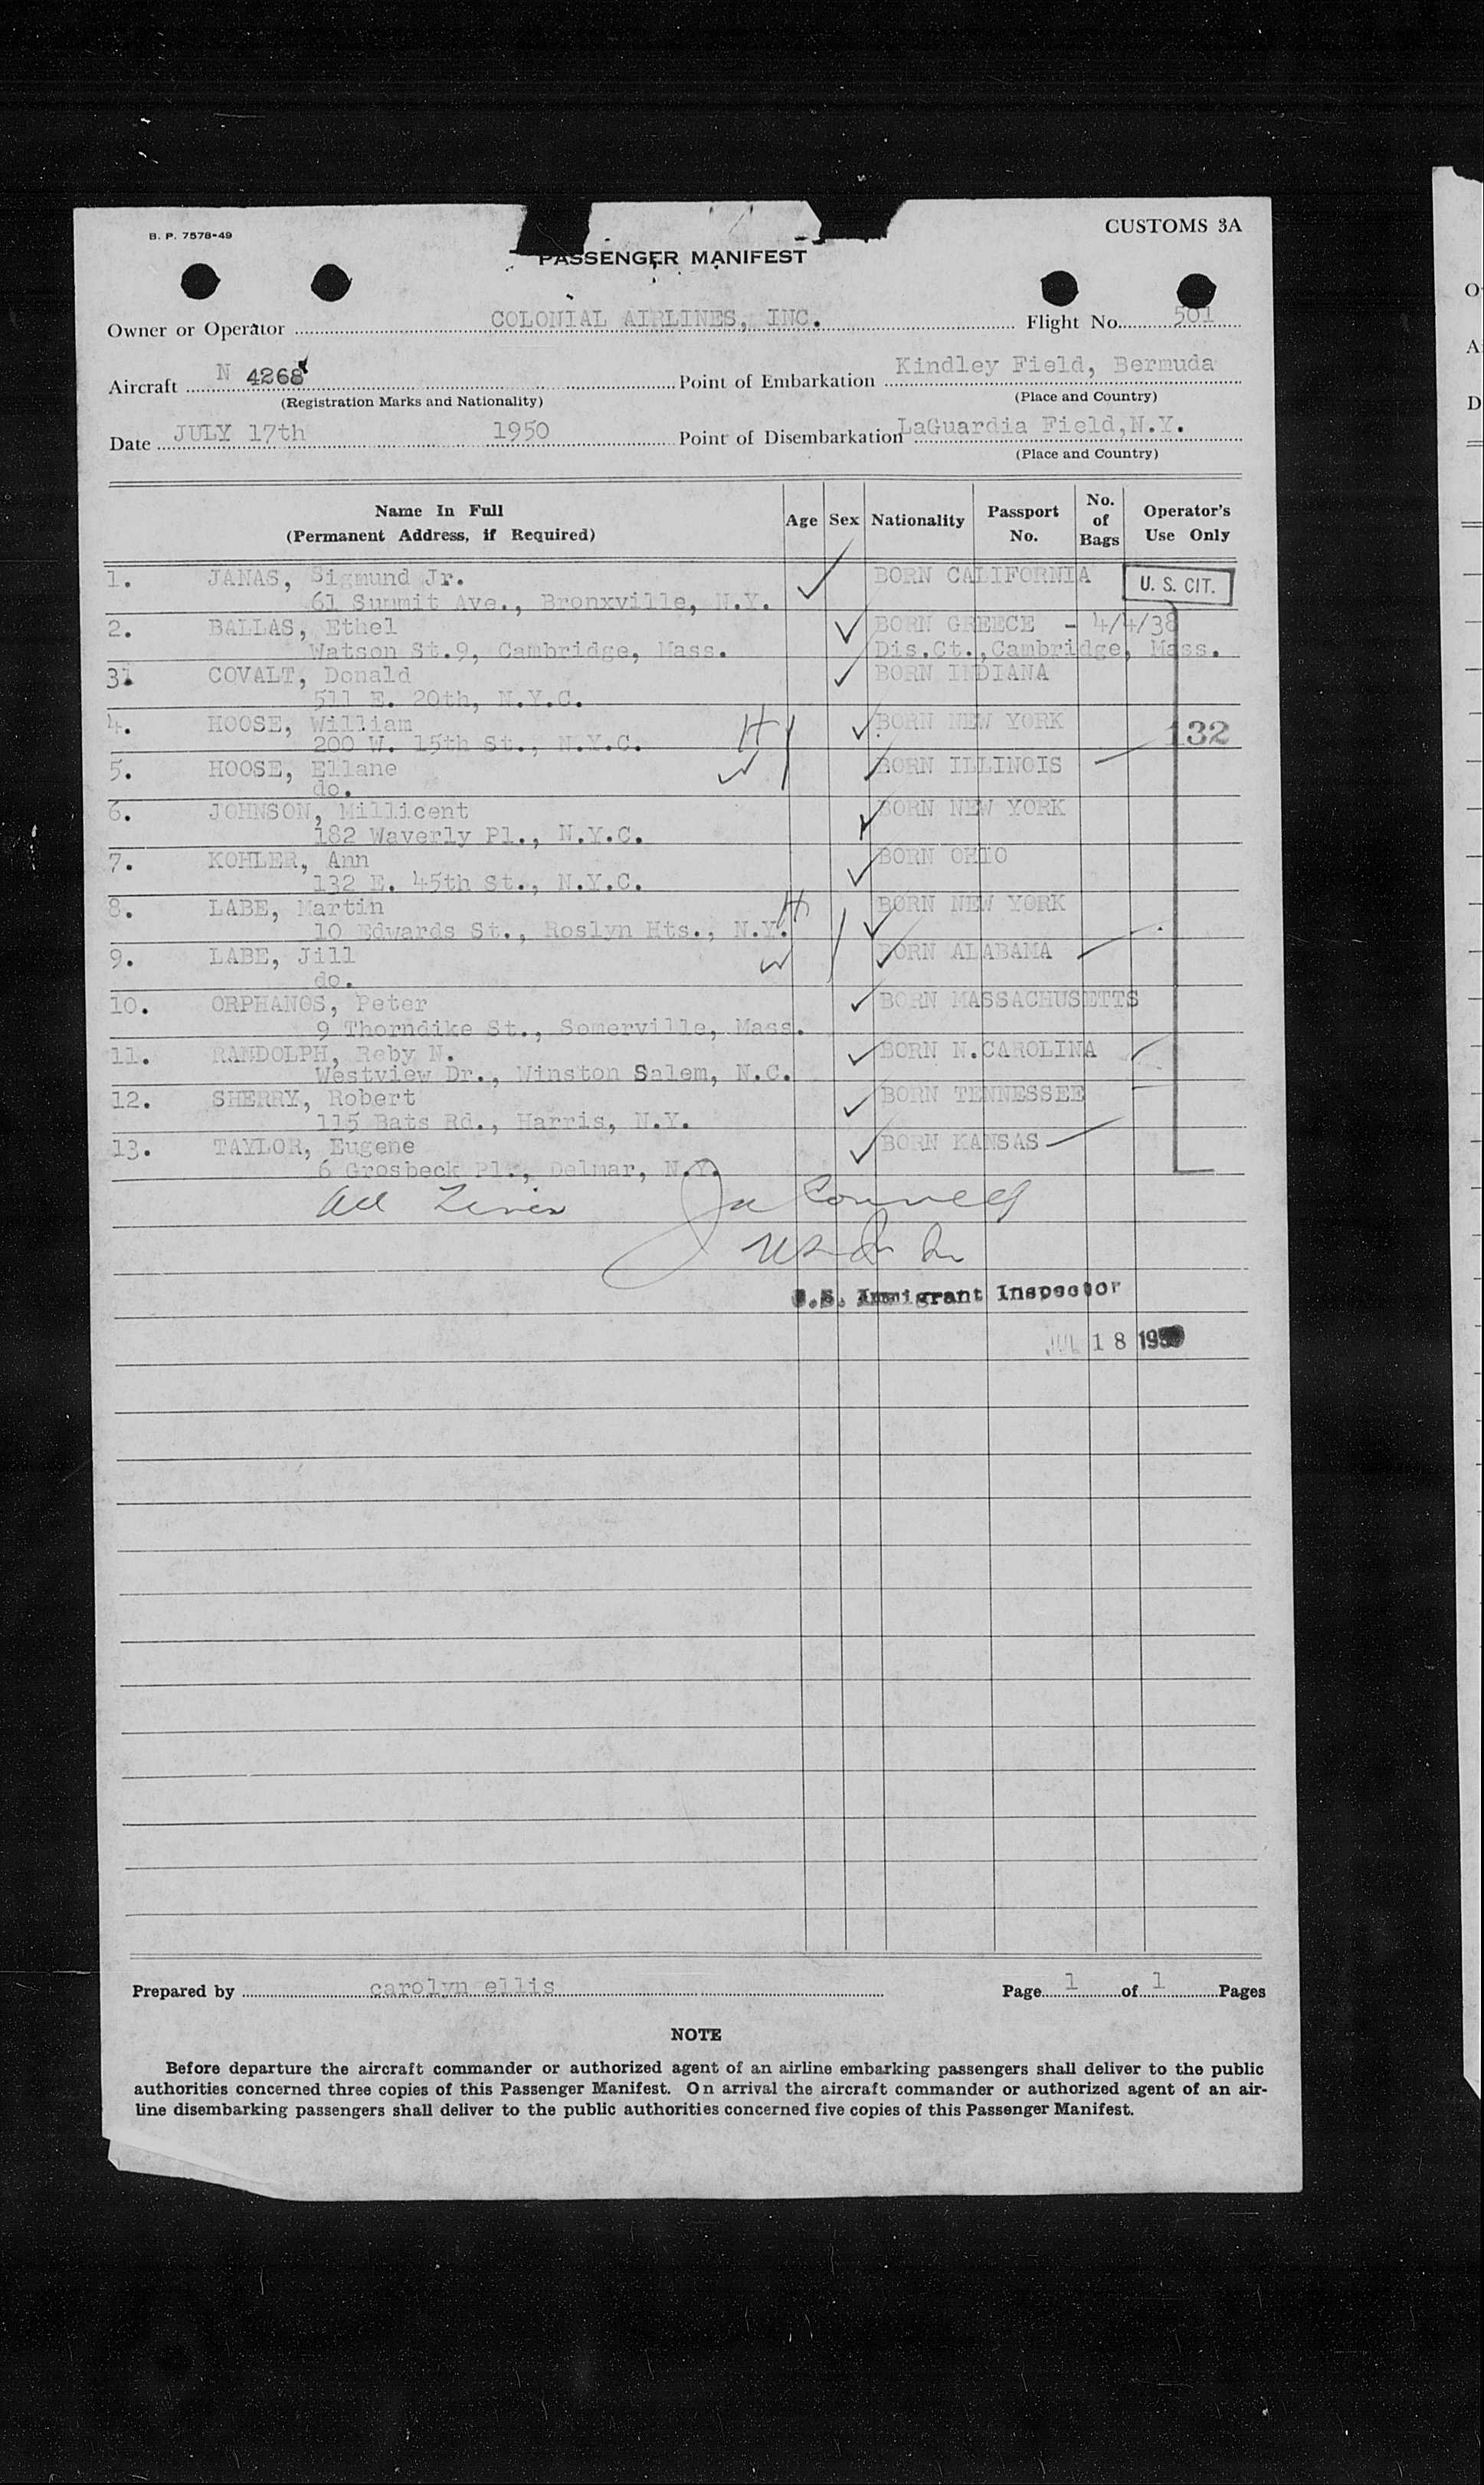 B. P. 7578-49
CUSTOMS 3A
PASSENGER MANIFEST
Owner or Operator COLONIAL AIRLINES, INC. Flight No. 501
Aircraft N 4268 Point of Embarkation Kindley Field, Bermuda
(Registration Marks and Nationality) (Place and Country)
Date JULY 17th 1950 Point of Disembarkation LaGuardia Field, N.Y.
(Place and Country)
Name In Full (Permanent Address, if Required) Age Sex Nationality Passport No. No. of Bags Operator's Use Only
1. JANAS, Sigmund Jr. BORN CALIFORNIA U. S. CIT.
61 Summit Ave., Bronxville, N.Y.
2. BALLAS, Ethel BORN GREECE - 4/4/38
Watson St.9, Cambridge, Mass. Dis.Ct.,Cambridge, Mass.
3. COVALT, Donald BORN INDIANA
511 E. 20th, N.Y.C.
4. HOOSE, William H BORN NEW YORK 132
200 W. 15th St., N.Y.C.
5. HOOSE, Ellane W BORN ILLINOIS
do.
6. JOHNSON, Millicent BORN NEW YORK
182 Waverly Pl., N.Y.C.
7. KOHLER, Ann BORN OHIO
132 E. 45th St., N.Y.C.
8. LABE, Martin H BORN NEW YORK
10 Edwards St., Roslyn Hts., N.Y.
9. LABE, Jill W BORN ALABAMA
do.
10. ORPHANOS, Peter BORN MASSACHUSETTS
9 Thorndike St., Somerville, Mass.
11. RANDOLPH, Reby N. BORN N.CAROLINA
Westview Dr., Winston Salem, N.C.
12. SHERRY, Robert BORN TENNESSEE
115 Bats Rd., Harris, N.Y.
13. TAYLOR, Eugene BORN KANSAS
6 Grosbeck Pl., Delmar, N.Y.
U.S. Immigrant Inspector
JUL 18 1950
Prepared by carolyn ellis Page 1 of 1 Pages
NOTE
Before departure the aircraft commander or authorized agent of an airline embarking passengers shall deliver to the public
authorities concerned three copies of this Passenger Manifest. On arrival the aircraft commander or authorized agent of an air-
line disembarking passengers shall deliver to the public authorities concerned five copies of this Passenger Manifest.